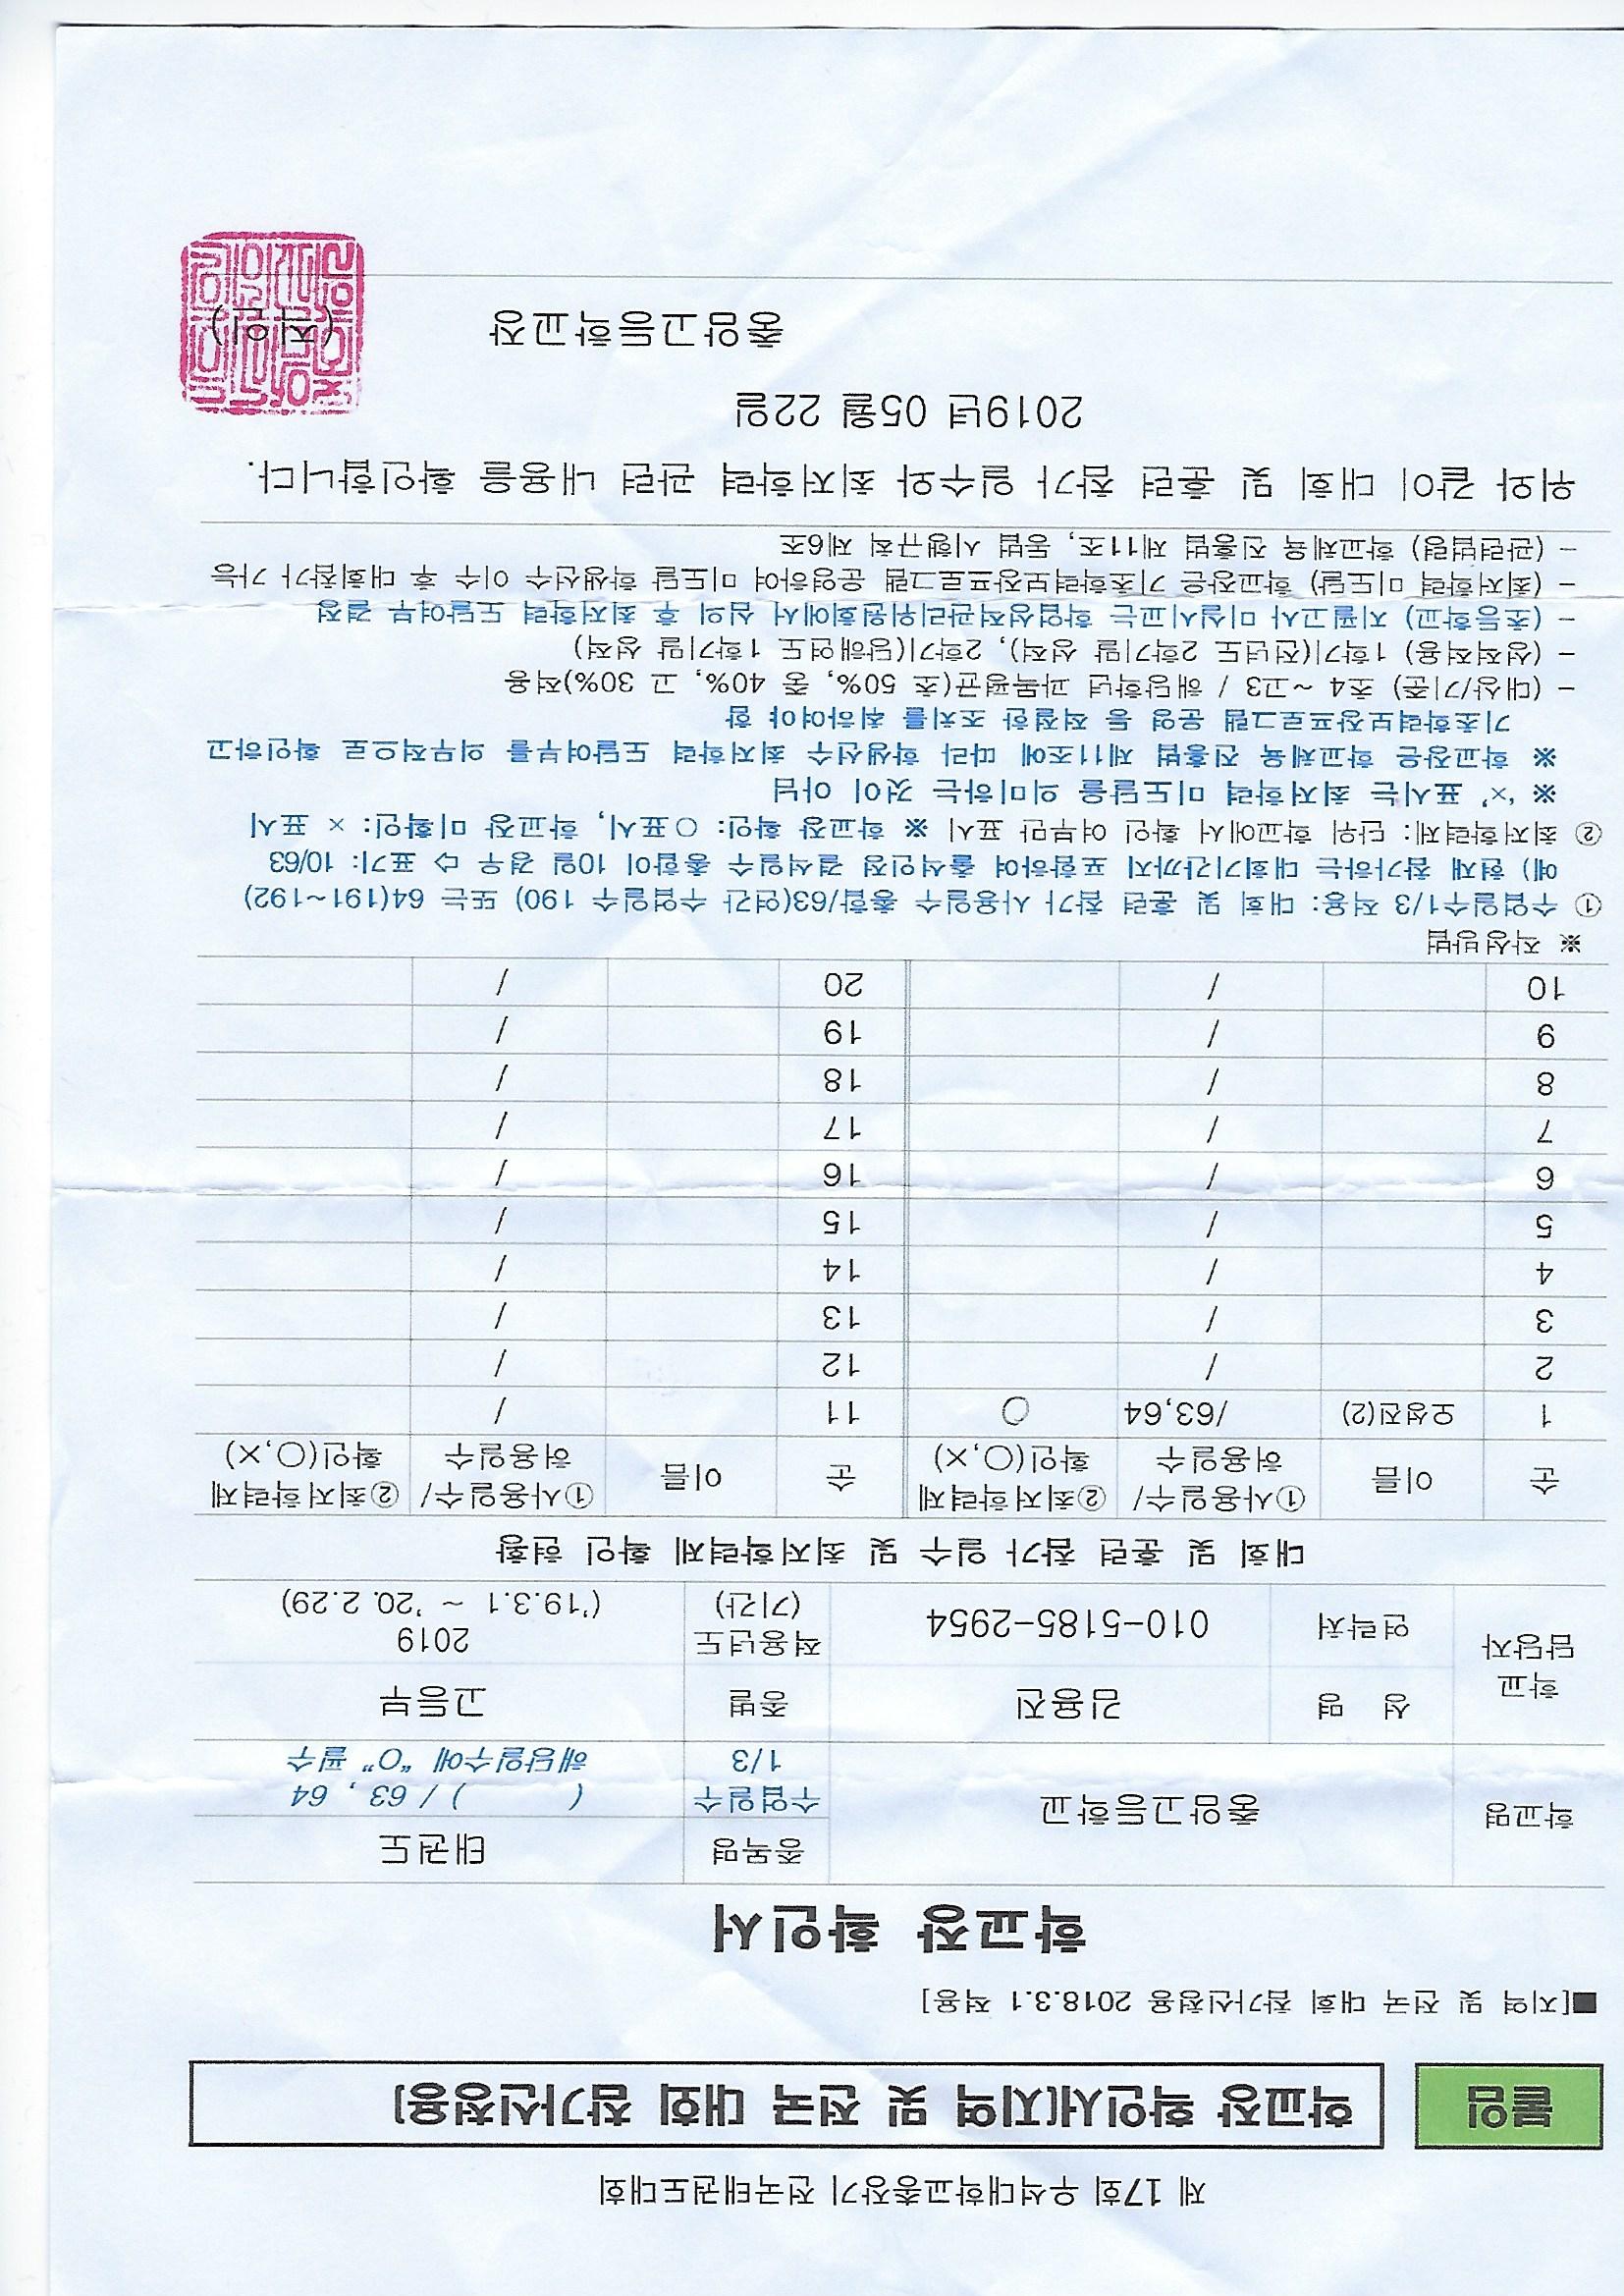 제 17회 우석대학교총장기 전국태권도대회
붙임 학교장 확인서[지역 및 전국 대회 참가신청용]
■[지역 및 전국 대회 참가신청용 2018.3.1 적용]
학교장 확인서
학교명 충암고등학교 종목명 태권도
수업일수 1/3 ( ) / 63 , 64
해당일수에 "O" 필수
학교 담당자 성 명 김용진 종별 고등부
연락처 010-5185-2954 적용년도 (기간) 2019
('19.3.1 ~ '20. 2.29)
대회 및 훈련 참가 일수 및 최저학력제 확인 현황
순 이름 ①사용일수/허용일수 ②최저학력제 확인(○,×) 순 이름 ①사용일수/허용일수 ②최저학력제 확인(○,×)
1 오성진(2) /63,64 ○ 11 /
2 / 12 /
3 / 13 /
4 / 14 /
5 / 15 /
6 / 16 /
7 / 17 /
8 / 18 /
9 / 19 /
10 / 20 /
※ 작성방법
① 수업일수1/3 적용: 대회 및 훈련 참가 사용일수 총합/63(연간 수업일수 190) 또는 64(191~192)
예) 현재 참가하는 대회기간까지 포함하여 출석인정 결석일수 총합이 10일 경우 ⇨ 표기: 10/63
② 최저학력제: 단위 학교에서 확인 여부만 표시 ※ 학교장 확인: ○표시, 학교장 미확인: × 표시
※ '×' 표시는 최저학력 미도달을 의미하는 것이 아님
※ 학교장은 학교체육 진흥법 제11조에 따라 학생선수 최저학력 도달여부를 의무적으로 확인하고
기초학력보장프로그램 운영 등 적절한 조치를 취하여야 함
- (대상/기준) 초4 ~고3 / 해당학년 과목평균(초 50%, 중 40%, 고 30%)적용
- (성적적용) 1학기(전년도 2학기말 성적), 2학기(당해연도 1학기말 성적)
- (초등학교) 지필고사 미실시교는 학업성적관리위원회에서 심의 후 최저학력 도달여부 결정
- (최저학력 미도달) 학교장은 기초학력보장프로그램 운영하여 미도달 학생선수 이수 후 대회참가 가능
- (관련법령) 학교체육 진흥법 제11조, 동법 시행규칙 제6조
위와 같이 대회 및 훈련 참가 일수와 최저학력 관련 내용을 확인합니다.
2019년 05월 22일
충암고등학교장 (직인)